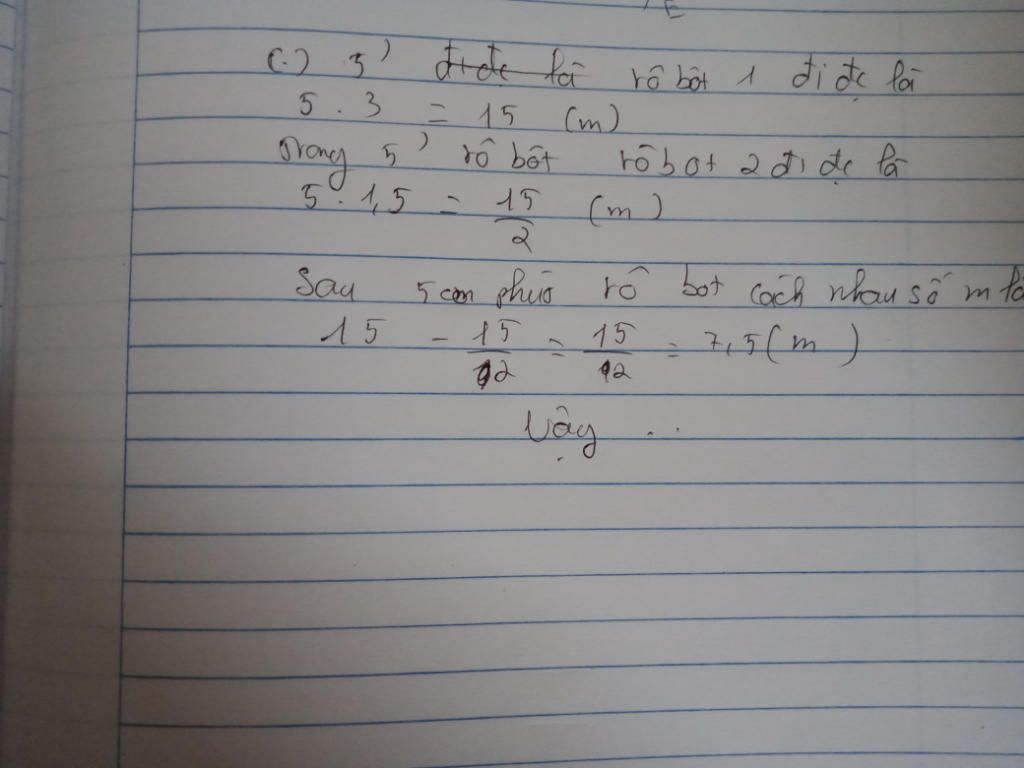 (.) 5' đi đc là rô bôt 1 đi đc là
5 . 3 = 15 (m)
Trong 5' rô bôt rô bot 2 đi đc là
5 . 1,5 = 15/2 (m)
Sau 5 phút rô bot cách nhau số m là
15 - 15/2 = 15/2 = 7,5 (m)
Vậy ...